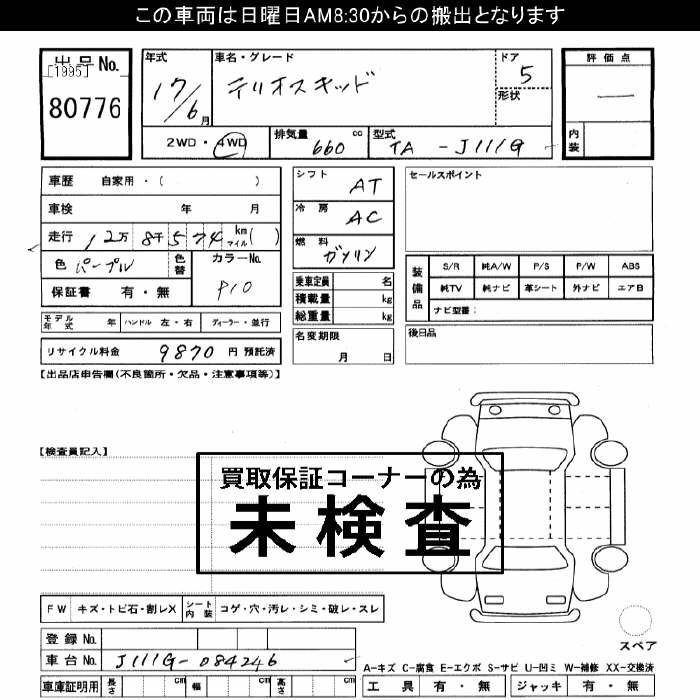 この車両は日曜日AM8:30からの搬出となります
出品No.
[1995]
80776
年式 17/6月
車名・グレード テリオスキッド
ドア 5
形状
2WD・4WD
排気量 660 cc
型式 TA-J111G
評価点 —
内装
車歴 自家用・( )
車検 年 月
走行 12万8千574 km マイル( )
色 パープル 色替
カラーNo. P10
保証書 有・無
モデル年式 年 ハンドル 左・右 ディーラー・並行
リサイクル料金 9870 円 預託済
シフト AT
冷房 AC
燃料 ガソリン
乗車定員 名
積載量 kg
総重量 kg
名変期限 月 日
セールスポイント
装備品
S/R 純A/W P/S P/W ABS
純TV 純ナビ 革シート 外ナビ エアB
ナビ型番:
後日品
【出品店申告欄(不良箇所・欠品・注意事項等)】
【検査員記入】
買取保証コーナーの為
未検査
FW キズ・トビ石・割レX シート内装 コゲ・穴・汚レ・シミ・破レ・スレ
登録No.
車台No. J111G-084246
車庫証明用 長さ cm 幅 cm 高さ cm
スペア
A-キズ C-腐食 E-エクボ S-サビ U-凹ミ W-補修 XX-交換済
工具 有・無 ジャッキ 有・無